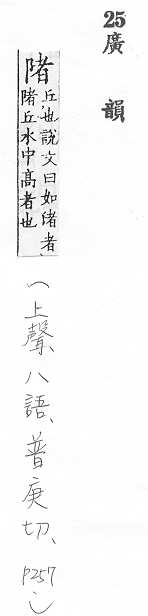 25廣韻
陼
丘也説文曰如渚者
陼丘水中高者也
(上聲、八語、普庚切、P257)